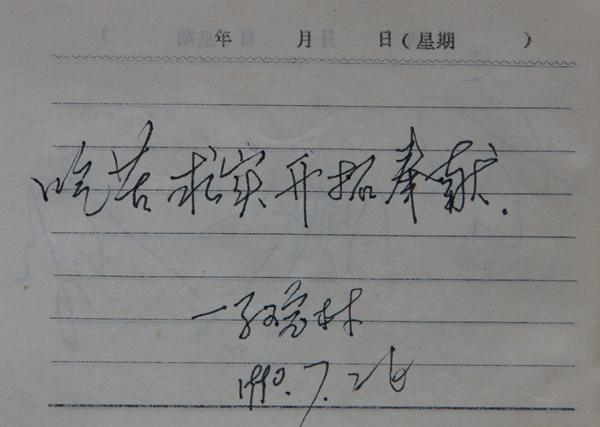 年 月 日（星期 ）
吃苦 求实 开拓 奉献.
1990.7.26